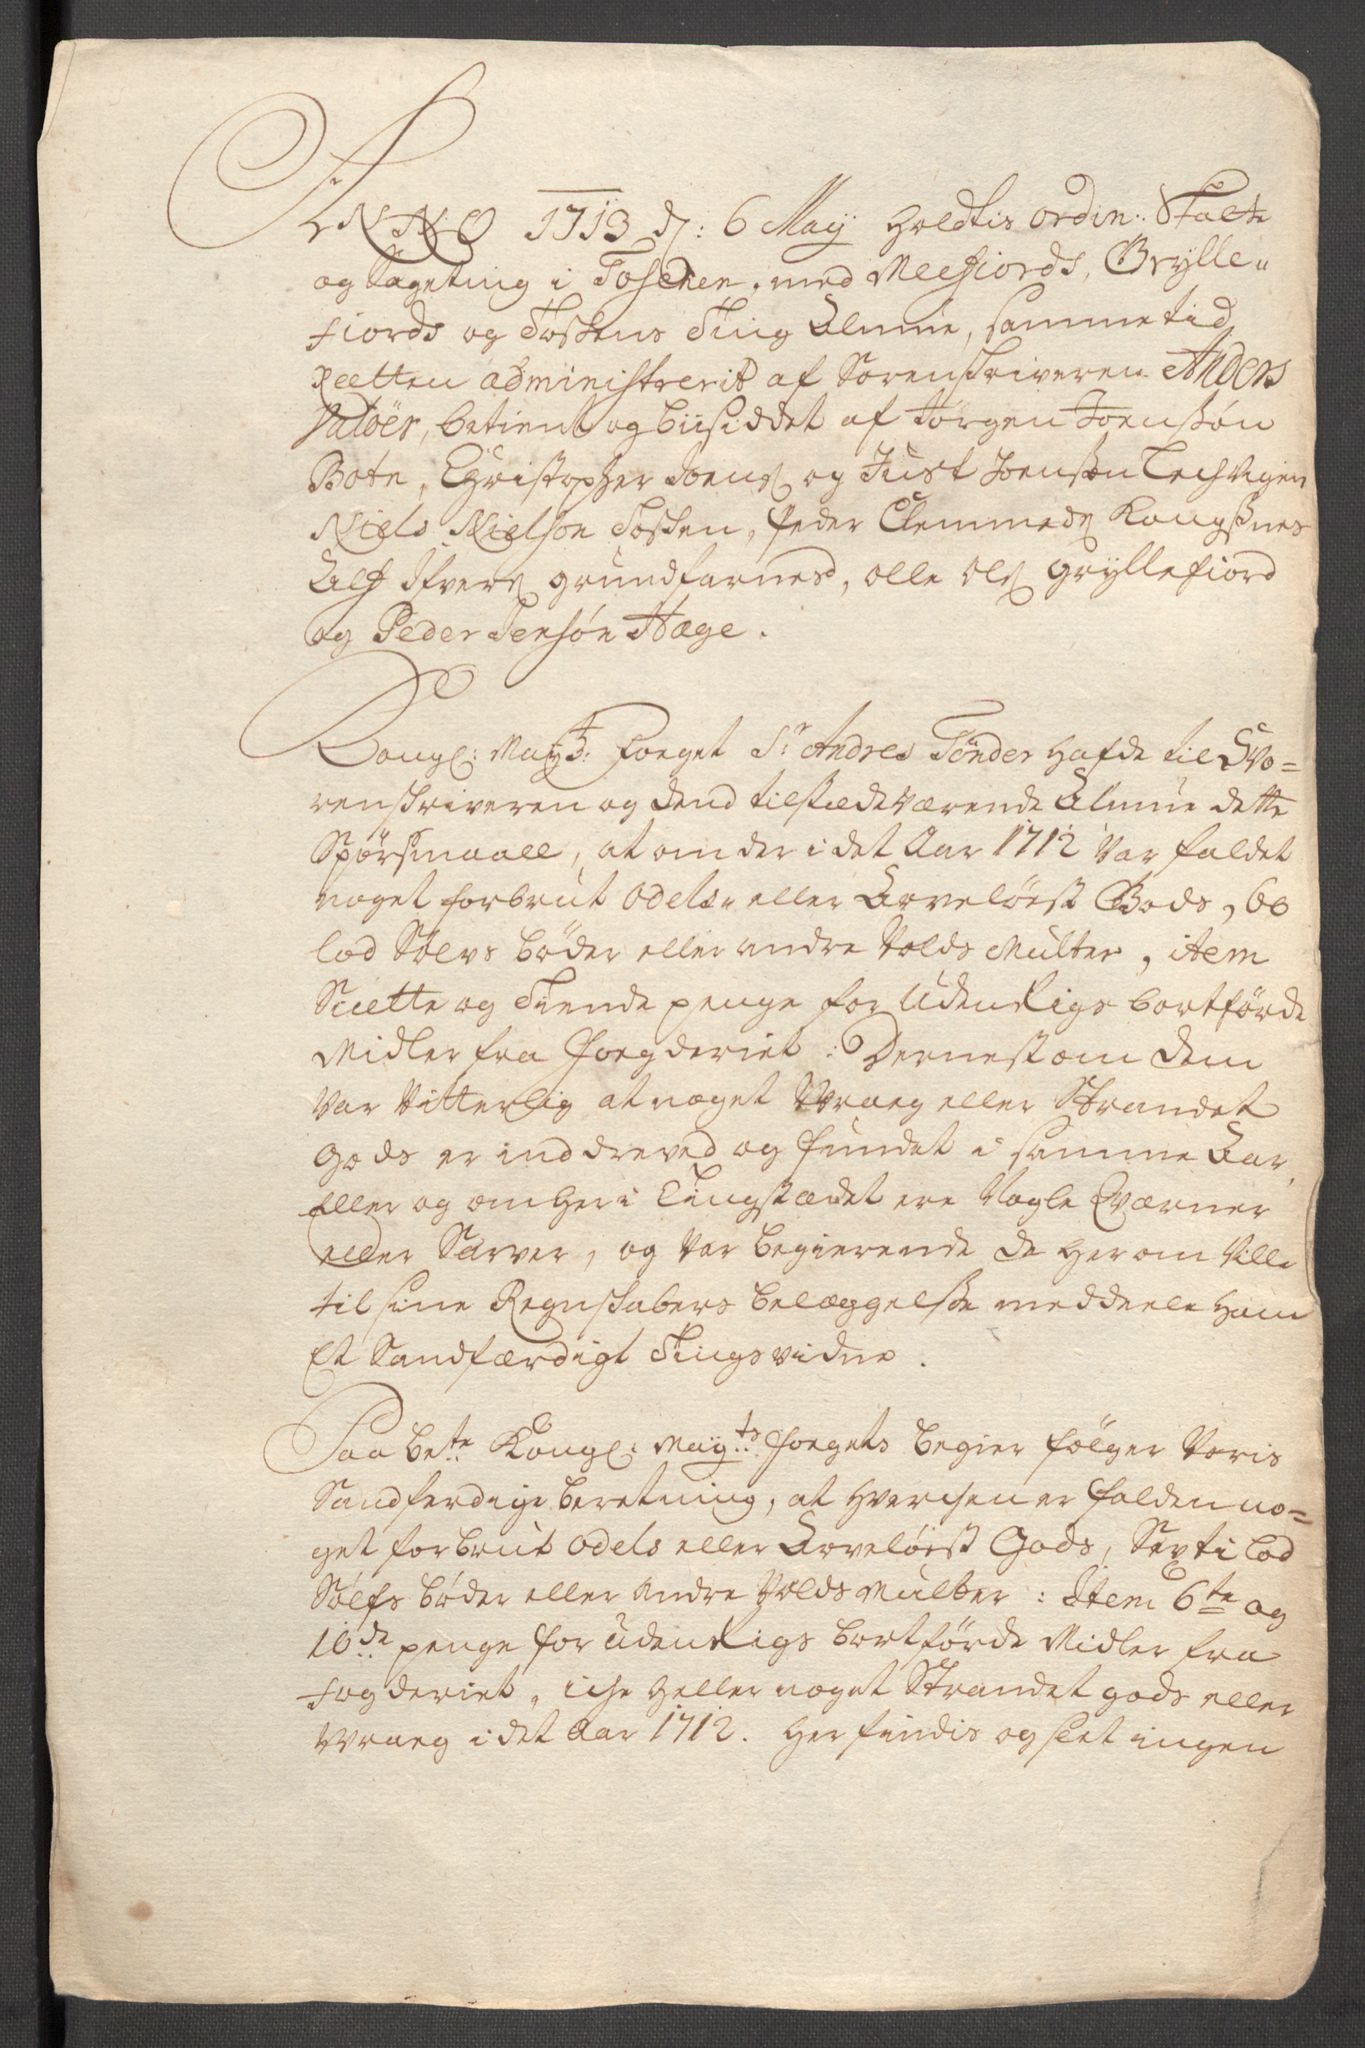 ANNO 1713 d: 6 Maij Holdtis ordin: Skatte
og Sageting i Toschen, med Meefiords, Grylle„
fiords og Toskens Ting Almue, samme tid
Retten administrerit af Sorenskriveren Anders
Valöer, betient og biisiddet af Jörgen Joensøn
Botn, Christopher Joens: og Just Joensøn Lechvigen
Niels Nielsøn Tosken, Peder Clemmeds: Kongsnes
Alf Ifvers: Grundfarnes, Olle Ols: Gryllefiord
og Peder Jensøn Hæge.
Kongl: Mayts: Foeget Sr Andres Tønder hafde til So=
renskriveren og dend tilstædeværende Almue dette
Spörsmaall, at om der i det Aar 1712 var faldet
noget forbrut Odels„ eller Arvelöest Gods, 60
lod Sölvs böder eller andre Volds Mulkter, item
Siette og Tiende penge for Udenrigs bortförde
Midler fra Foegderiet: Dernest om dem
var vitterlig at noget Vraeg eller Strandet
Gods er inddreved og fundet i samme Aar,
Eller og om her i Tingstædet ere Nogle Qværner
eller Sauver, og var begierende de her om ville
til sine Regnskabers belæggelsse meddeele ham
Et Sandfærdigt Tingsvidne.
Paa bete: Kongl: Mayts: Foegets begier fölger voris
Sandferdige beretning, at hverchen er falden no=
get forbrut Odels eller Arvelöest Gods, Sexti lod
Sölfs böder eller Andre Volds Mulkter: Item 6te og
10de: penge for udenrigs bortförde Midler fra
fogderiet, iche heller noget Strandet gods eller
Vraeg i det Aar 1712. Her findis og slet ingen